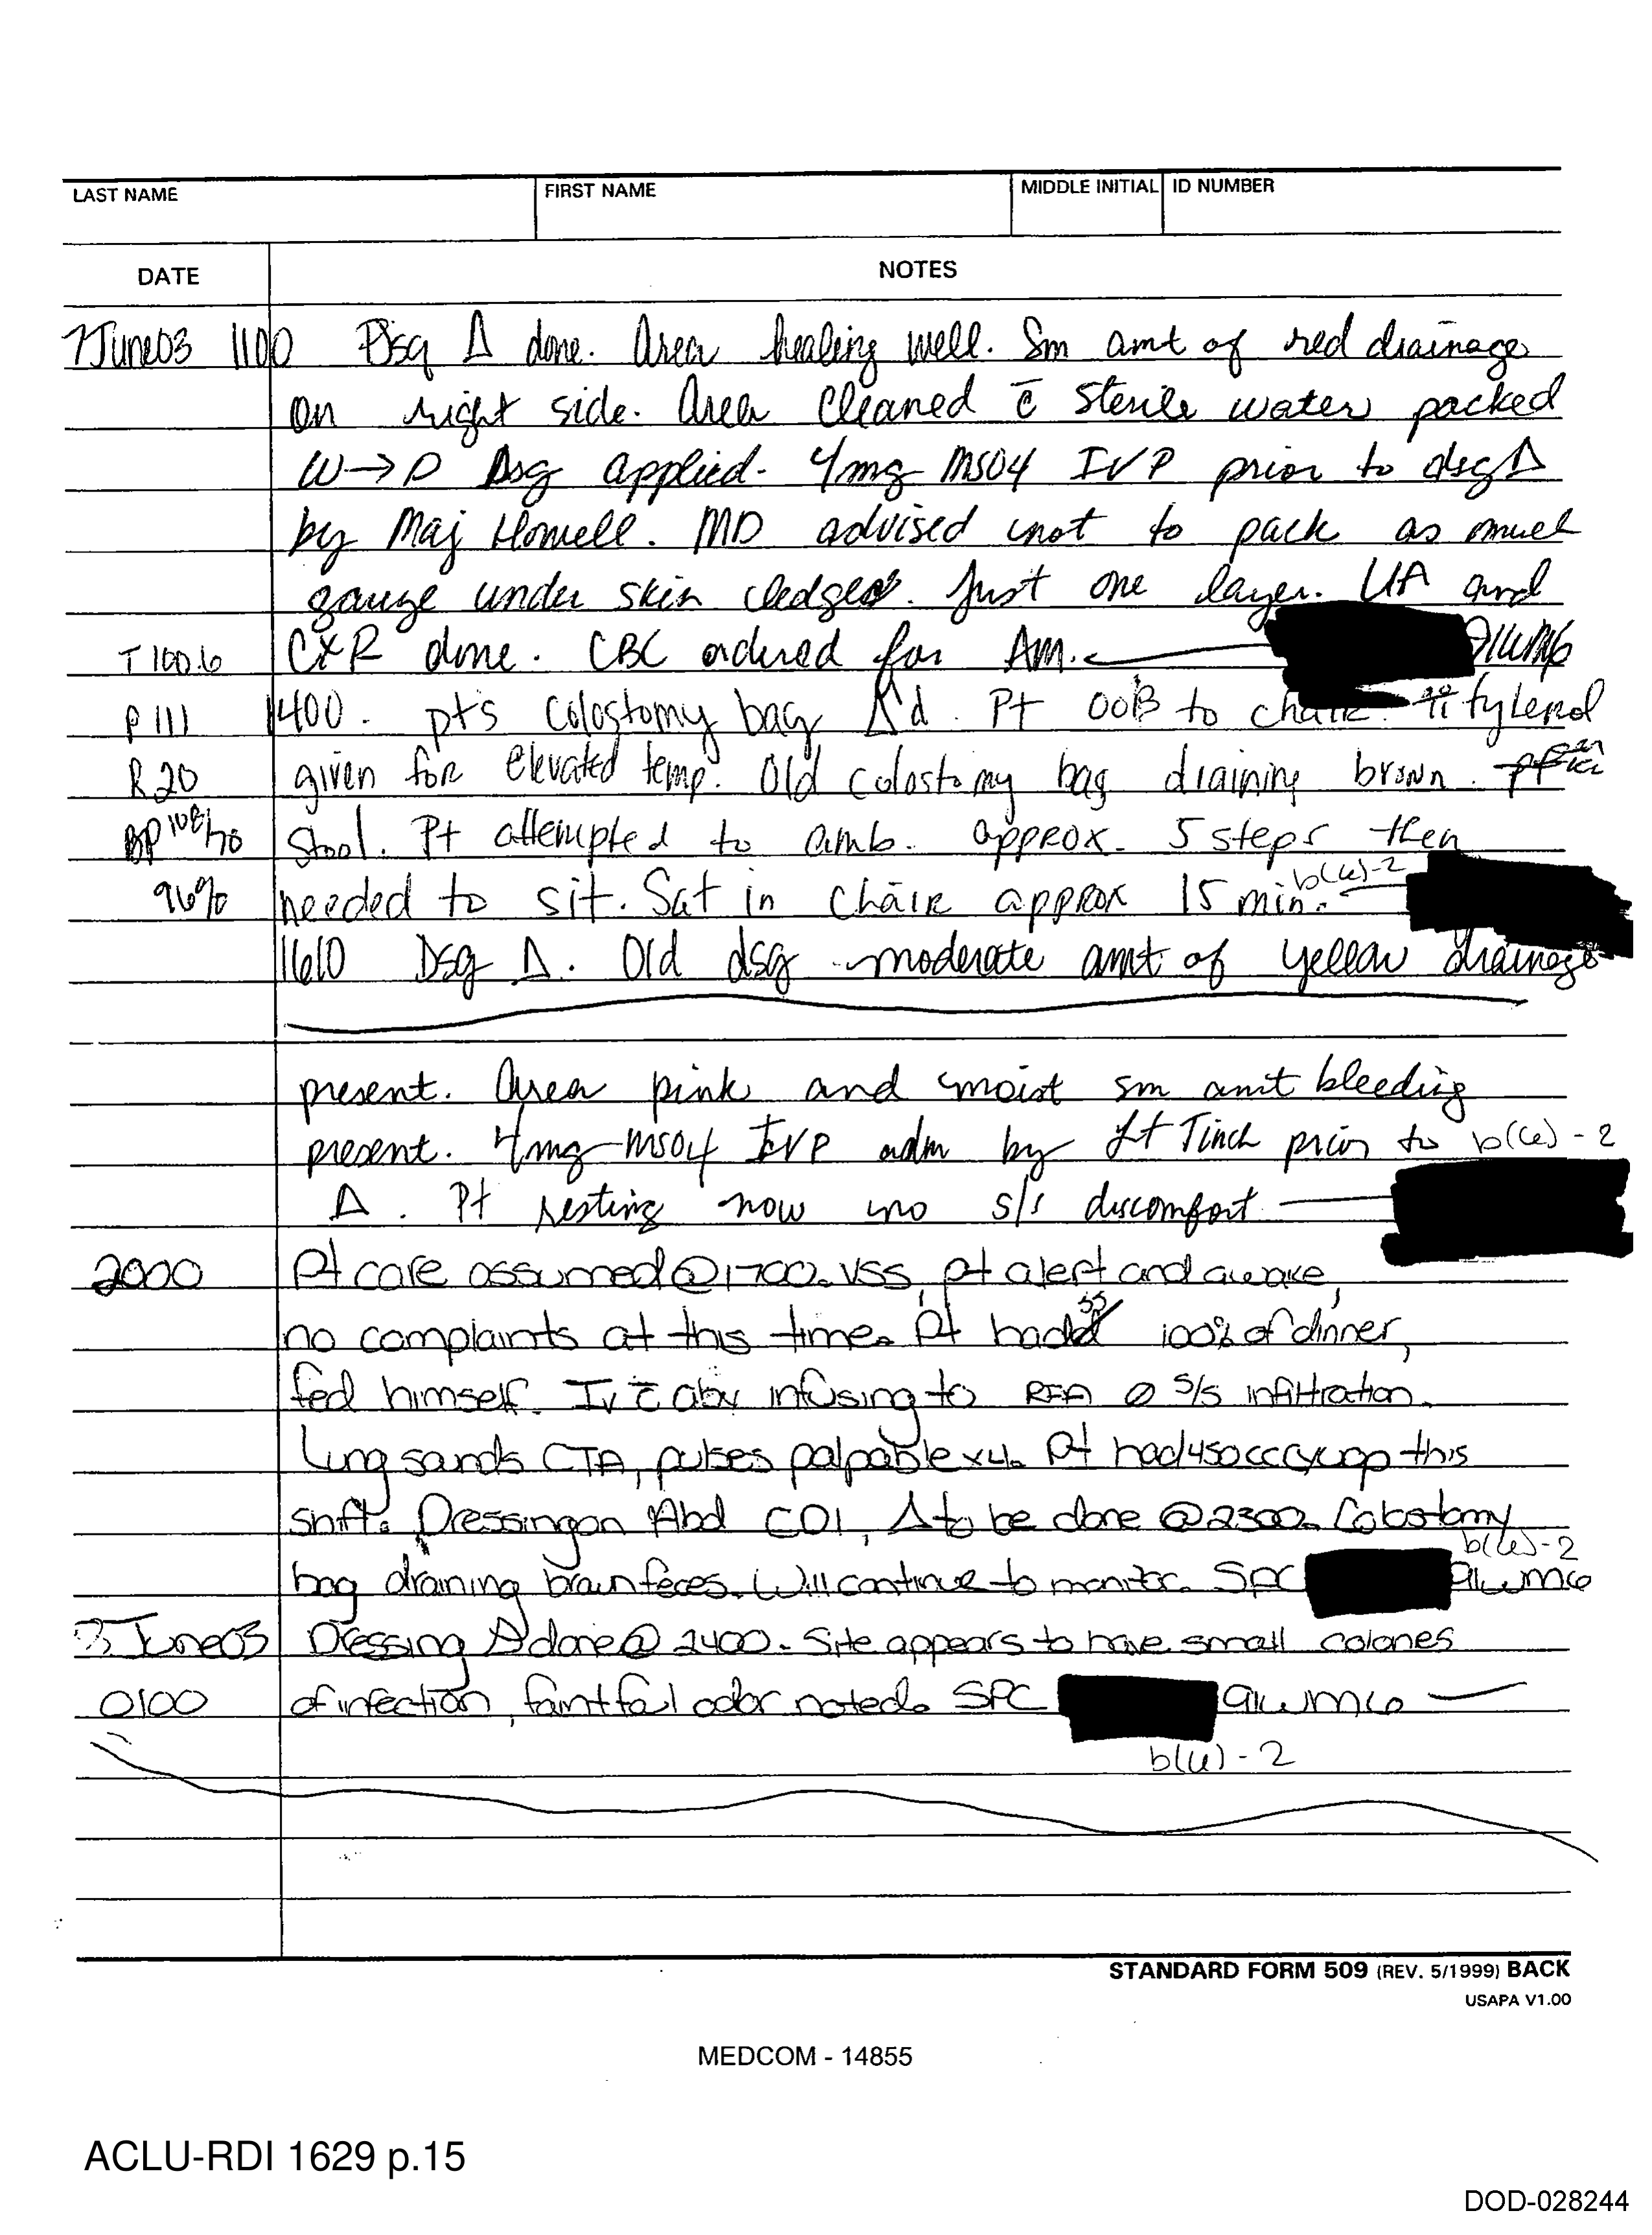 LAST NAME FIRST NAME MIDDLE INITIAL ID NUMBER
DATE NOTES
7June03 1100 Dsg Δ done. Area healing well. Sm amt of red drainage
on right side. Area cleaned c̄ sterile water packed
W→D Dsg applied. 4mg MSO4 IVP prior to dsg Δ
by Maj Howell. MD advised not to pack as much
gauze under skin edges. Just one layer. UA and
T 100.6 CXR done. CBC ordered for AM. 91WM6
P 111 1400. pts colostomy bag Δ'd. Pt OOB to chair. ii tylenol
R 20 given for elevated temp. Old colostomy bag draining brown.
BP 108/70 stool. Pt attempted to amb. approx. 5 steps then
96% needed to sit. Sat in chair approx 15 min. b(6)-2
1610 Dsg Δ. Old dsg moderate amt of yellow drainage
present. Area pink and moist sm amt bleeding
present. 4mg MSO4 IVP adm by Lt Tinch prior to b(6)-2
Δ. Pt resting now no s/s discomfort
2000 Pt care assumed @ 1700. VSS, pt alert and awake,
no complaints at this time. Pt had 100% of dinner,
fed himself. IV c̄ abx infusing to RFA Ø s/s infiltration.
Lung sands CTA, pulses palpable x4. Pt had 450cc uop this
shift. Dressing on Abd CDI, Δ to be done @ 2300. Colostomy
b(6)-2
bag draining brown feces. Will continue to monitor. SPC 91WM6
8 June03 Dressing Δ done @ 2400. Site appears to have small colones
0100 of infection, faint foul odor noted. SPC 91WM6
b(6)-2
STANDARD FORM 509 (REV. 5/1999) BACK
USAPA V1.00
MEDCOM - 14855
ACLU-RDI 1629 p.15
DOD-028244